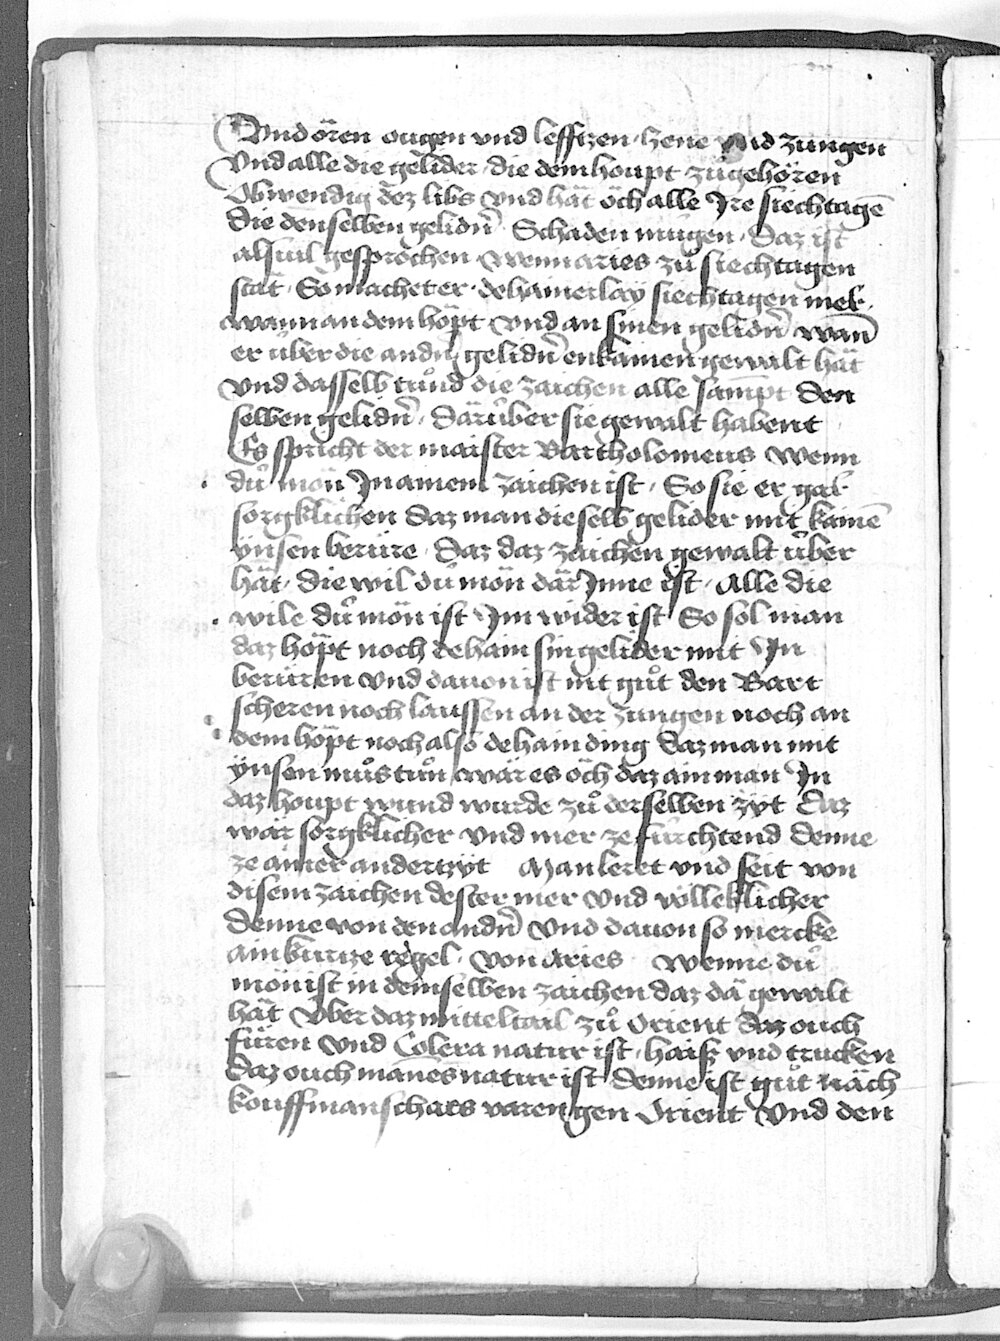 Vnd oͤren ougen vnd leffczen hene vnd zungen
Vnd alle die gelider die dem houpt zuͦgehoͤren
Obwendig dez libs vnd haͤt oͤch alle Jre siechtagē
die denselben gelidn̄ Schaden mugen Daz ist
alsuil gesprochen wenn aries zuͦ siechtagen
staͤt So machet er dehainerlay siechtagen
wann an dem hoͤpt vnd an sinen gelidn̄ wan̄
er uͤber die andn̄ gelidn̄ enkainen gewalt haͤt
vnd dasselb tuͦnd die zaichen alle sampt den
selben gelidn̄ daruͤber sie gewalt habent
Es spricht der maister Bartholomeus wenn
duͤ moͤn Jn ainem zaichen ist So sie er gar
sorgklichen daz man dieselb gelider mit kainē
ynsen beruͤre daz daz zaichen gewalt uͤber
haͤt die wil duͤ moͤn dar Jnne ist Alle die
wile duͤ moͤn ist Jm wider ist So sol man
daz hoͤpt noch dehain sin gelider mit Jn
beruͤren vnd dauon ist nit guͦt den Bart
scheren noch laussen an der zungen noch an
dem hoͤpt noch also dehain ding daz man mit
ynsen muͦs tuͦn waͤr es oͤch daz ain man Jn
daz houpt wund wurde zuͦ derselben zyt Daz
waͤr sorgklicher vnd mer ze fuͤrchtend denne
ze ainer andern zyt Man leret vnd seit von
disem zaichen dester mer vnd volleklicher
denne von den andn̄ vnd dauon so mercke
ain kurcze regel von aries wenne duͤ
moͤn ist in demselben zaichen daz daͤ gewalt
haͤt vber daz mitteltail zuͦ Orient daz ouch
fuͤren vnd Colera natur ist haiß vnd trucken
daz ouch mānes natur ist denne ist guͦt naͤch
kouffmanschacs varen gen Orient vnd den